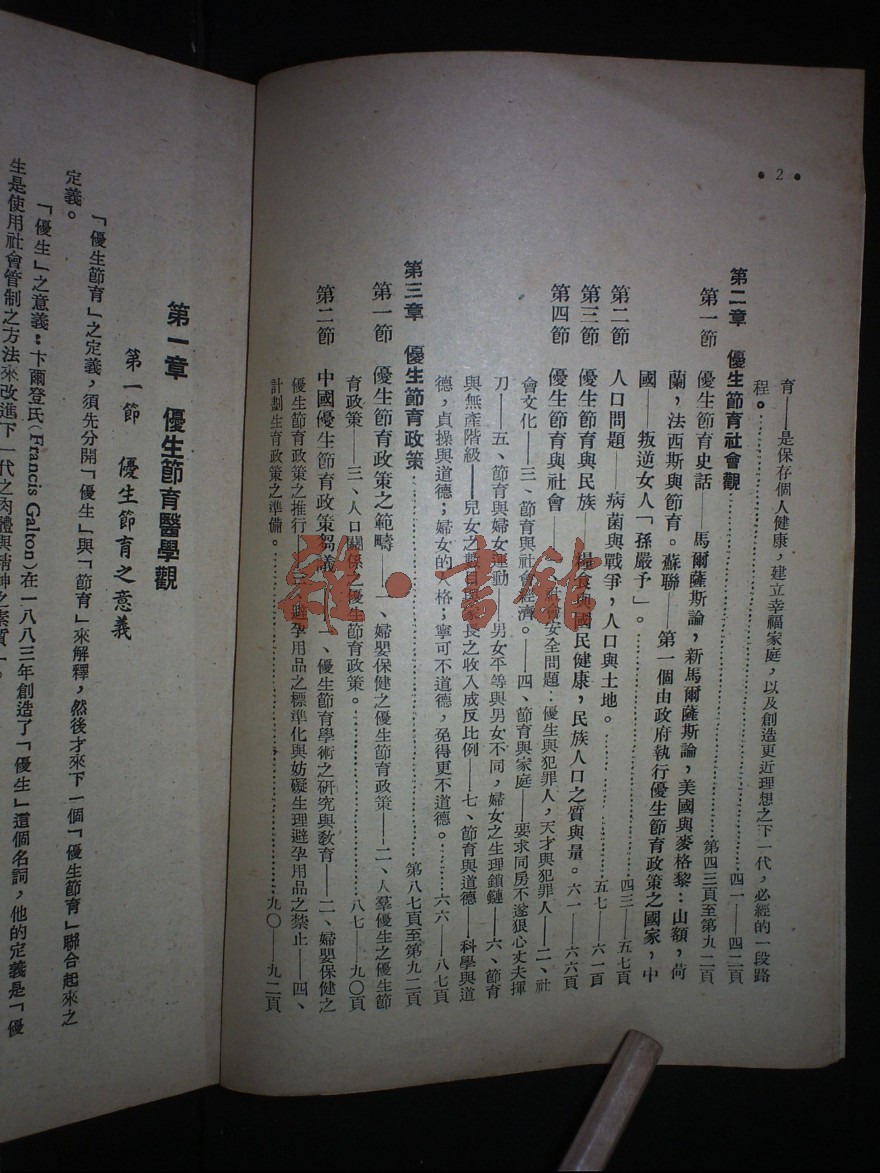 • 2 •
育——是保存個人健康，建立幸福家庭，以及創造更近理想之下一代，必經的一段路
程。……四一——四二頁
第二章　優生節育社會觀……第四三頁至第九二頁
第一節　優生節育史話——馬爾薩斯論，新馬爾薩斯論，美國與麥格黎：山額，荷
蘭，法西斯與節育。蘇聯——第一個由政府執行優生節育政策之國家，中
國——叛逆女人「孫嚴予」。……四三——五七頁
第二節　人口問題——病菌與戰爭，人口與土地。……五七——六一頁
第三節　優生節育與民族——糧食與國民健康，民族人口之質與量。六一——六六頁
第四節　優生節育與社會——一、社會安全問題：優生與犯罪人，天才與犯罪人——二、社
會文化——三、節育與社會經濟。——四、節育與家庭——要求同房不遂狠心丈夫揮
刀——五、節育與婦女運動——男女平等與男女不同，婦女之生理鎖鏈——六、節育
與無產階級——兒女之數目與家長之收入成反比例——七、節育與道德——科學與道
德，貞操與道德；婦女的人格；寧可不道德，免得更不道德。……六六——八七頁
第三章　優生節育政策……第八七頁至第九二頁
第一節　優生節育政策之範疇——一、婦嬰保健之優生節育政策——二、人羣優生之優生節
育政策——三、人口關係之優生節育政策。……八七——九〇頁
第二節　中國優生節育政策芻議——一、優生節育學術之研究與教育——二、婦嬰保健之
優生節育政策之推行——三、避孕用品之標準化與妨礙生理避孕用品之禁止——四、
計劃生育政策之準備。……九〇——九二頁
第一章　優生節育醫學觀
第一節　優生節育之意義
「優生節育」之定義，須先分開「優生」與「節育」來解釋，然後才來下一個「優生節育」聯合起來之
定義。
「優生」之意義：卞爾登氏(Francis Galton)在一八八三年創造了「優生」這個名詞，他的定義是「優
生是使用社會管制之方法來改進下一代之肉體與精神之素質」。
雜・書館